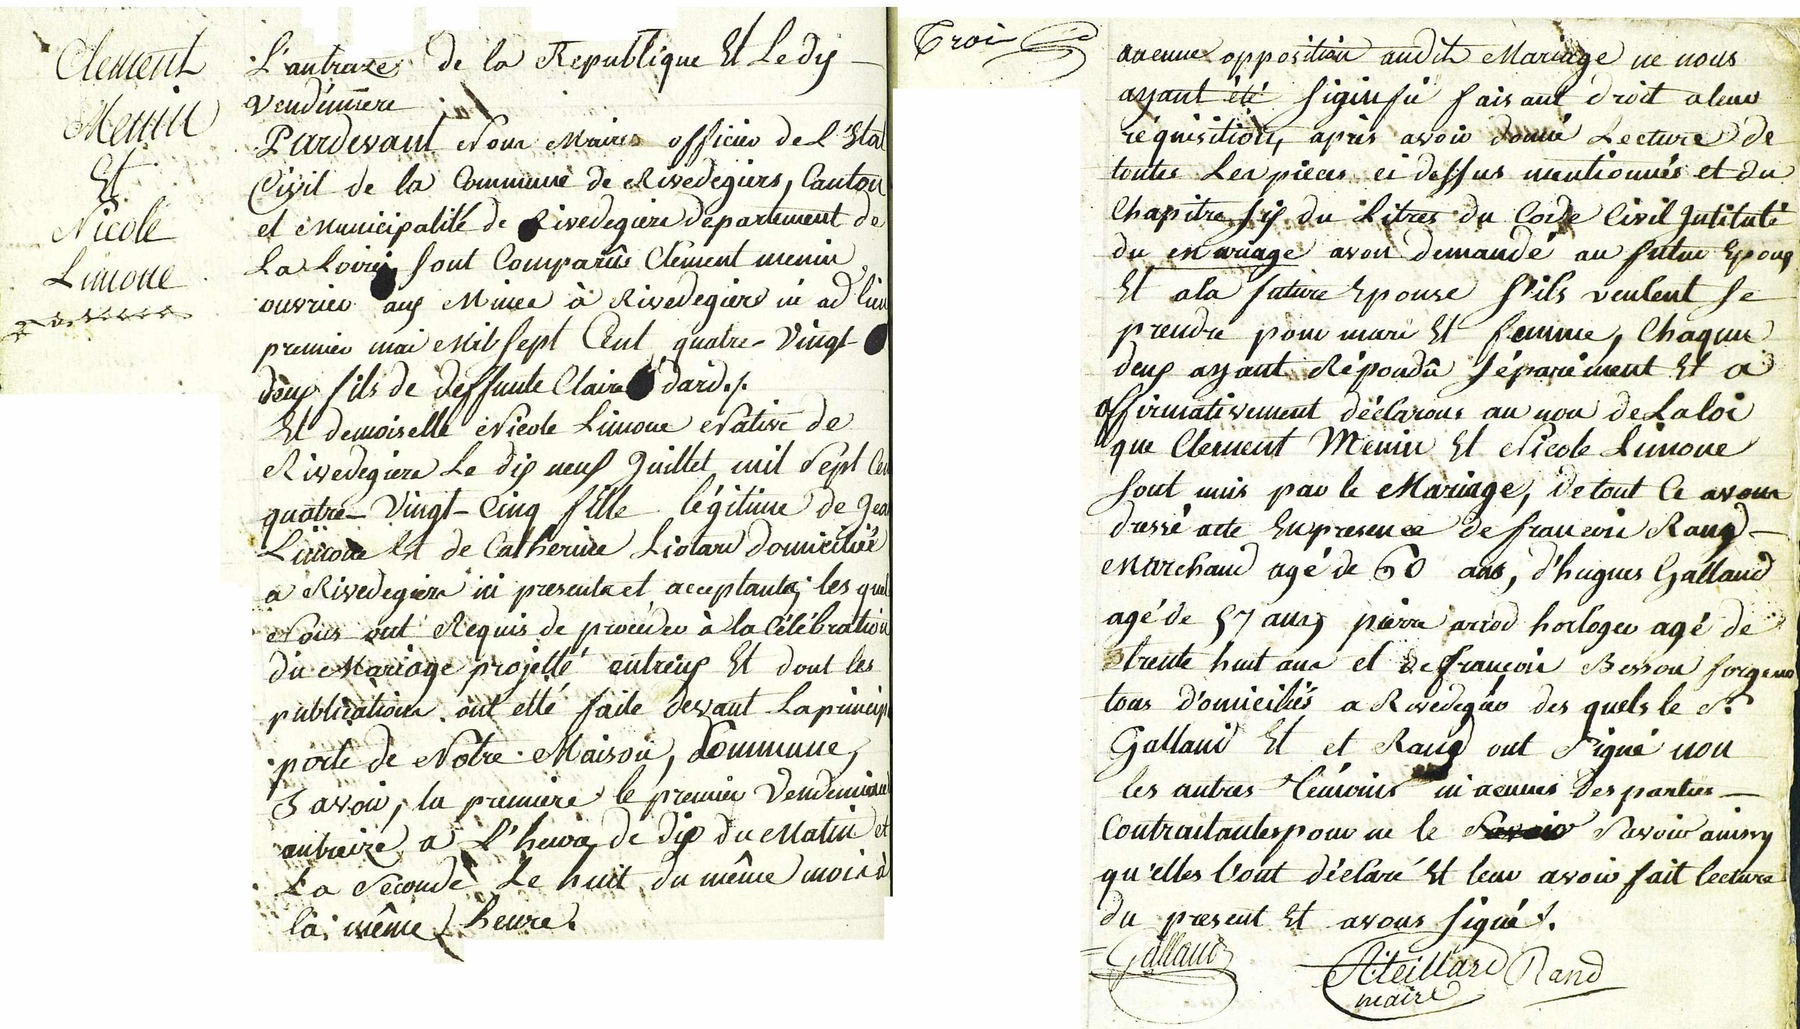 Clement
Menin
Et
Nicole
Limone
L'antraze de la Republique Et Le dix
Vendémiere
Pardevant Nous Maire officier de L'Etat
Civil de la Commune de Rivedegiers, Canton
et Municipalité de Rivedegiers departement de
La Loire, sont Comparûs Clément menin
ouvrier aux Mines à Rivedegiers
premier mai Mil sept Cent quatre-Vingt
deux fils de deffunte Claire dard./.
Et demoiselle Nicole Limone Native de
Rivedegiers Le dix neuf Juillet mil Sept Cen
quatre-Vingt-Cinq fille légitime de Jea
Limone Et de Catherine Liotard domiciliés
a Rivedegiers ici presente et acceptante; les quel
Nous ont Requis de procéder à la Célébration
du Mariage projetté entreux Et dont les
publications ont etté faite devant La princip
porte de Notre Maison, Commune,
Savoir, la premiere le premier Vendemiaire
antraize a L'heure de dix du Matin et
La Seconde Le huit du même mois à
la même heure.
Troi
aucune opposition audit Mariage ne nous
ayant été siginfié faisant droit a leur
réquisition, après avoir donné Lecture de
toutes Les pièces ci dessus mentionnés et du
Chapitre six du Litres du Code Civil Intitulé
du mariage avon demandé au futur Epoux
Et a la future Epouse s'ils veulent se
prendre pour mari Et femme, Chaqun
deux ayant Répondû séparément Et a
affirmativement déclarons au non de La loi
que Clement Menin Et Nicole Limone
sont unis par le Mariage, de tout Ce avons
dressé acte En presence de françois Rand
Marchand agé de 60 ans, d'hugues Galland
agé de 57 ans, pierre arrod horloger agé de
trente huit ans et de françois Besson forgeur
tous d'omiciliés a Rivedegier des quels le Sr.
Galland Et et Rand ont Signé non
les autres Témoins ni aenues des parties
Contractantes pour ne le Savoir Savoir
qu'elles l'ont déclaré Et leur avoir fait lecture
du present Et avons signé ./.
Galland
A. teillard Rand
maire